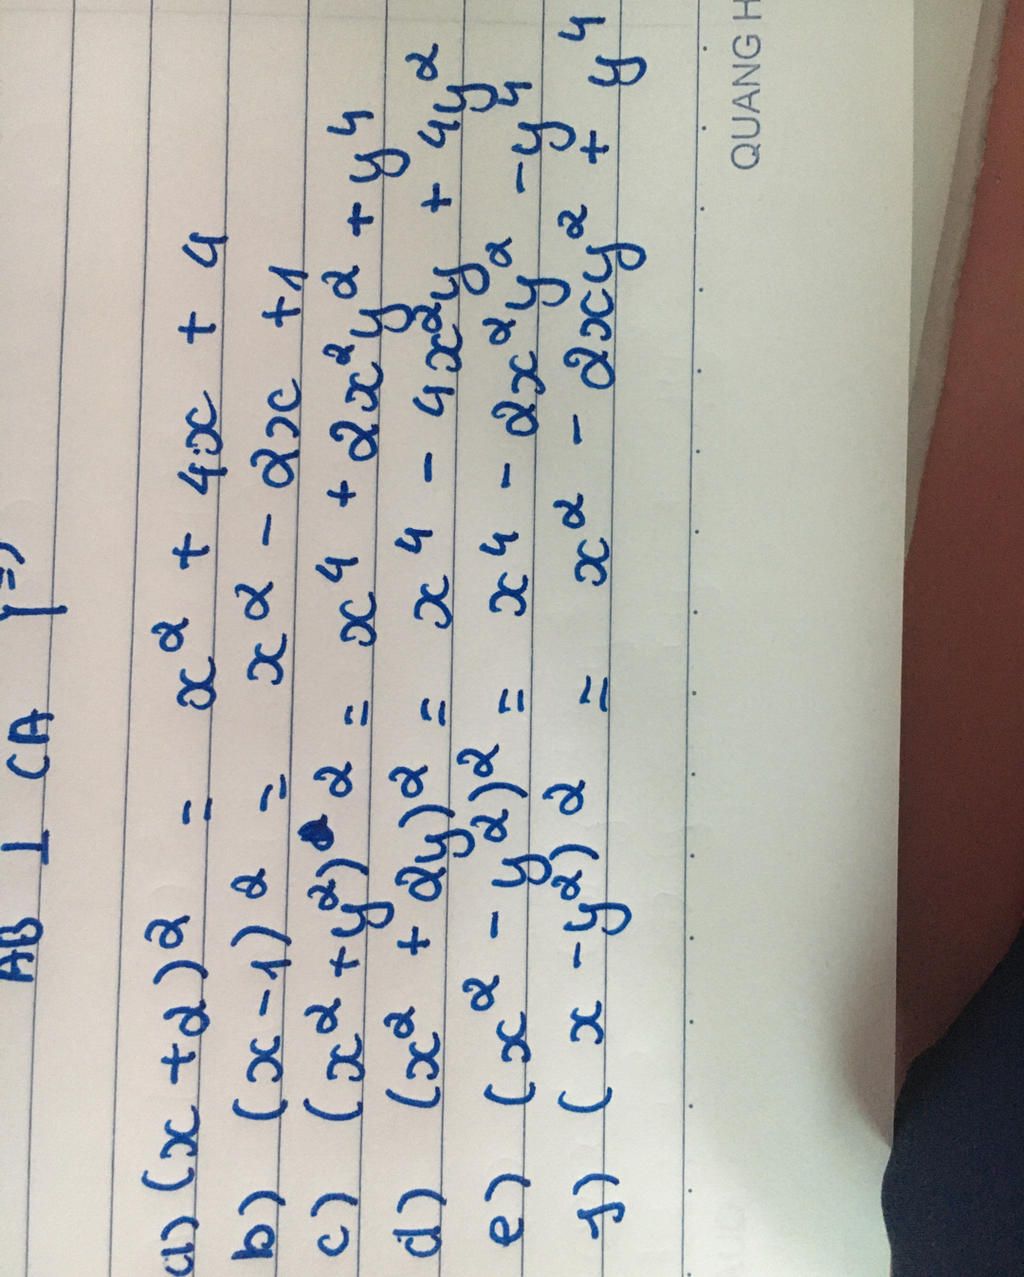 AB ⊥ CA
a) (x+2)² = x² + 4x + 4
b) (x-1)² = x² - 2x + 1
c) (x² + y²)² = x⁴ + 2x²y² + y⁴
d) (x² + 2y)² = x⁴ - 4x²y + 4y²
e) (x² - y²)² = x⁴ - 2x²y² - y⁴
f) (x - y²)² = x² - 2xy² + y⁴
QUANG H